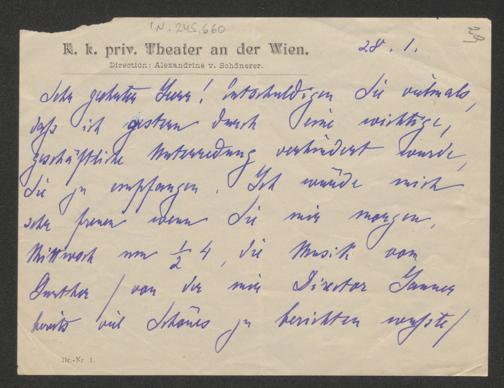 I.N. 245.660
28
K. k. priv. Theater an der Wien.
Direction: Alexandrine v. Schönerer.
28. 1.
Sehr geehrter Herr! Entschuldigen Sie vielmals,
daß ich gestern durch eine wichtige,
geschäftliche Unterredung verhindert wurde,
Sie zu empfangen. Ich würde mich
sehr freuen wenn Sie mir morgen,
Mittwoch um ½ 4, die Musik von
/von der mir Director Jauner
bereits viel Schönes zu berichten wußte/
Dr.-Nr. 1.